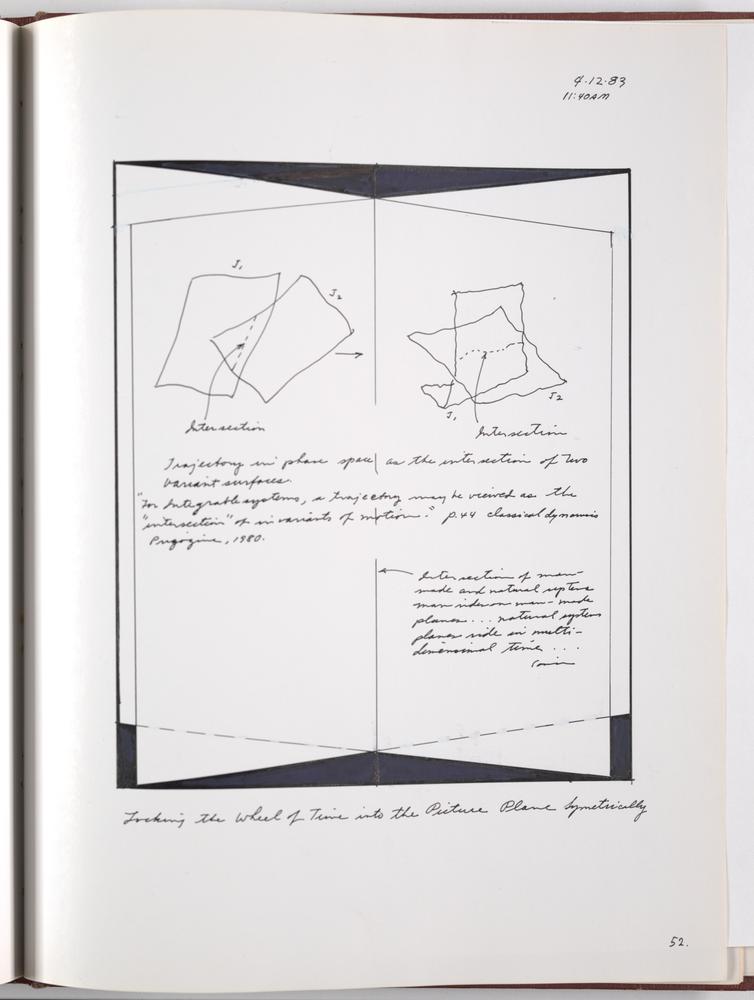 4·12·83
11:40AM
J1
J2
Intersection
J1
J2
Intersection
Trajectory in phase space as the intersection of Two
variant surfaces.
"For Integrable systems, a trajectory may be viewed as the
"intersection" of invariants of motion." p.44 classical dynamics
Prigogine, 1980.
Intersection of man-
made and natural systems
man rides on man-made
planes . . . natural systems
planes ride in multi-
dimensional time . . .
Locking the Wheel of Time into the Picture Plane Symetrically
52.